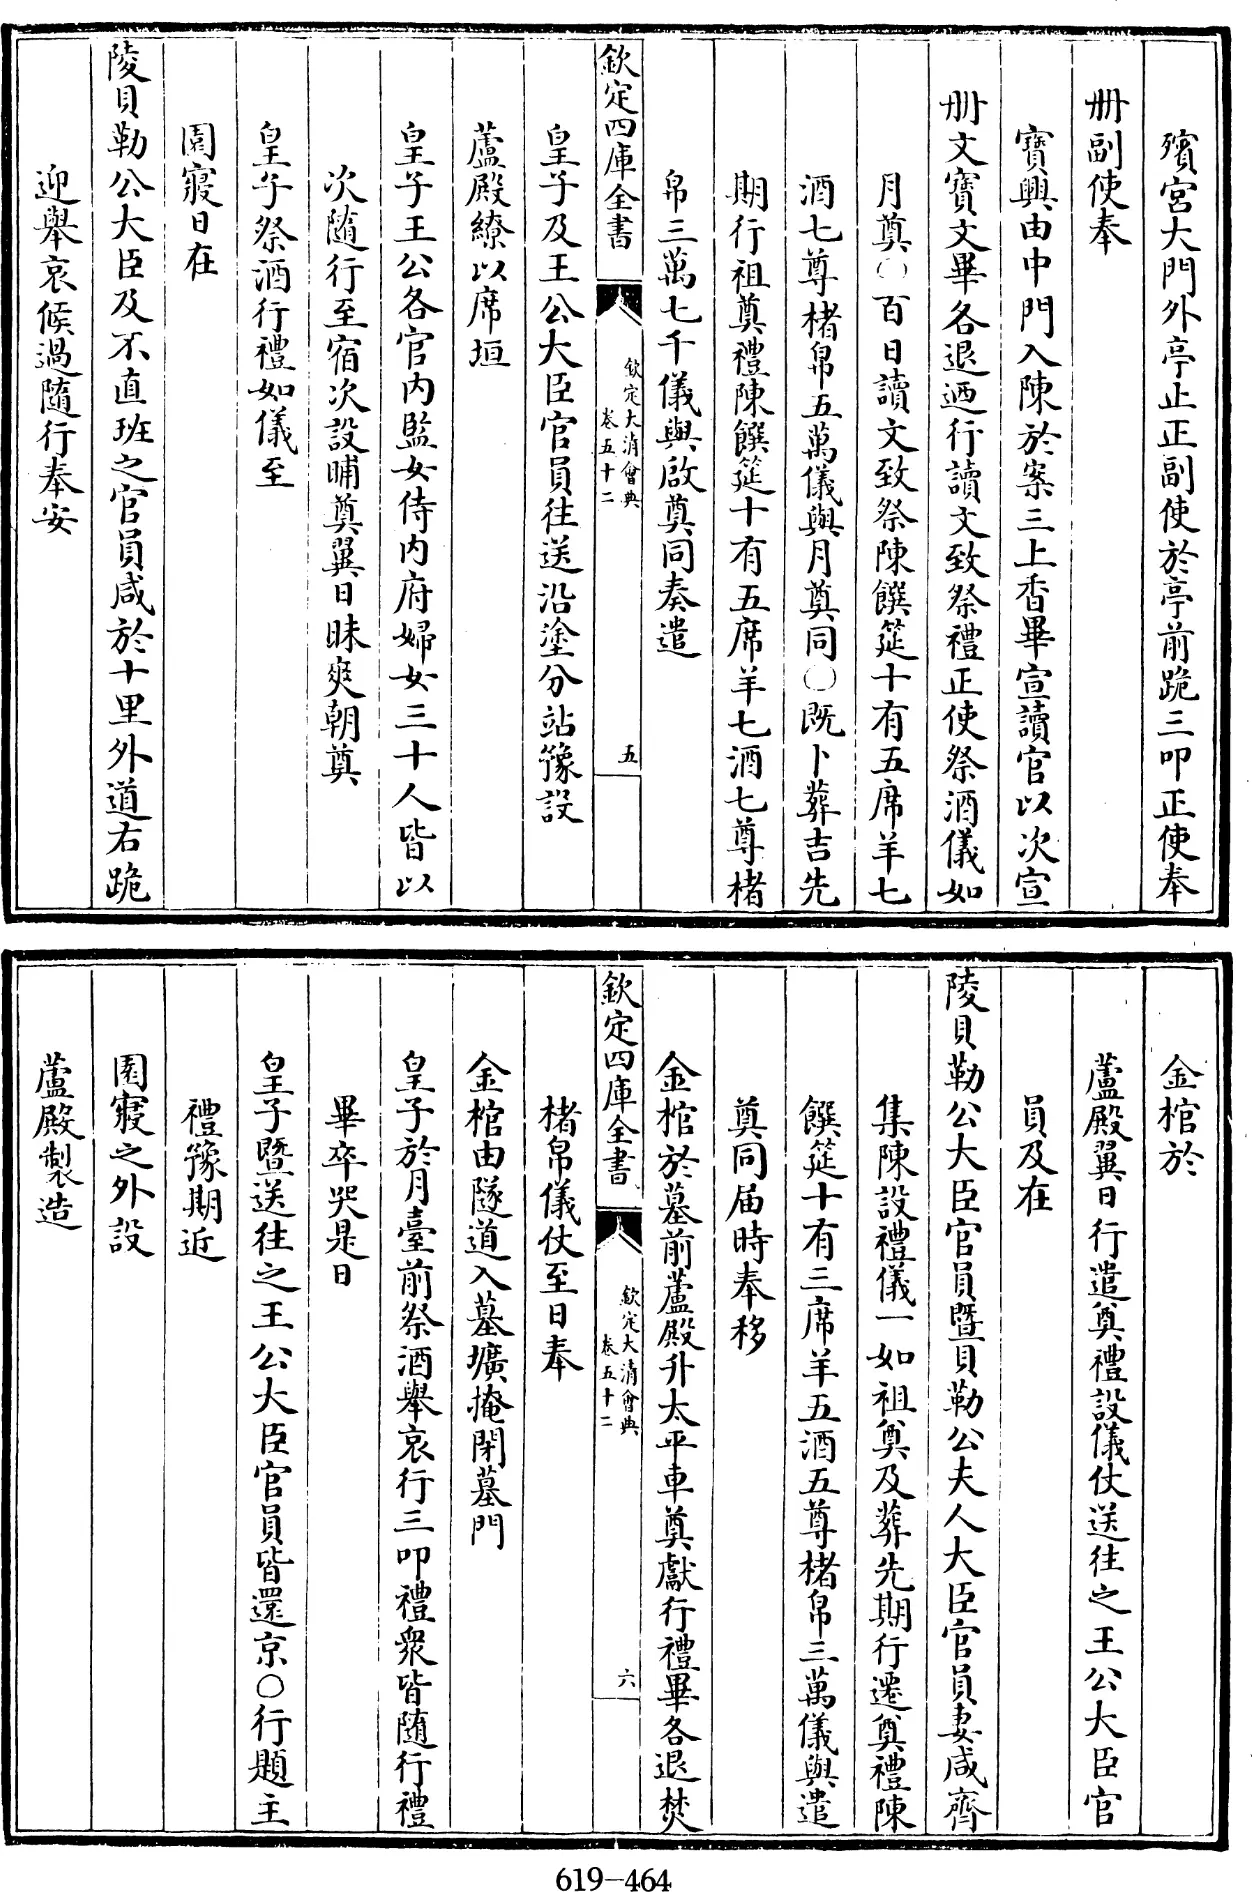 殯宫大門外亭止正副使於亭前跪三叩正使奉
冊副使奉
寳輿由中門入陳於案三上香畢宣讀官以次宣
冊文寳文畢各退廼行讀文致祭禮正使祭酒儀如
月奠○百日讀文致祭陳饌筵十有五席羊七
酒七尊楮帛五萬儀與月奠同○既卜葬吉先
期行祖奠禮陳饌筵十有五席羊七酒七尊楮
帛三萬七千儀與啟奠同奏遣
欽定四庫全書
欽定大清會典
卷五十二
五
皇子及王公大臣官員往送沿塗分站豫設
蘆殿繚以席垣
皇子王公各官内監女侍内府婦女三十人皆以
次隨行至宿次設晡奠翼日昧爽朝奠
皇子祭酒行禮如儀至
園寢日在
陵貝勒公大臣及不直班之官員咸於十里外道右跪
迎舉哀候過隨行奉安
金棺於
蘆殿翼日行遣奠禮設儀仗送往之王公大臣官
員及在
陵貝勒公大臣官員暨貝勒公夫人大臣官員妻咸齊
集陳設禮儀一如祖奠及葬先期行遷奠禮陳
饌筵十有三席羊五酒五尊楮帛三萬儀與遣
奠同届時奉移
金棺於墓前蘆殿升太平車奠獻行禮畢各退焚
欽定四庫全書
欽定大清會典
卷五十二
六
楮帛儀仗至日奉
金棺由隧道入墓壙掩閉墓門
皇子於月臺前祭酒舉哀行三叩禮衆皆隨行禮
畢卒哭是日
皇子暨送往之王公大臣官員皆還京○行題主
禮豫期近
園寢之外設
蘆殿製造
619-464